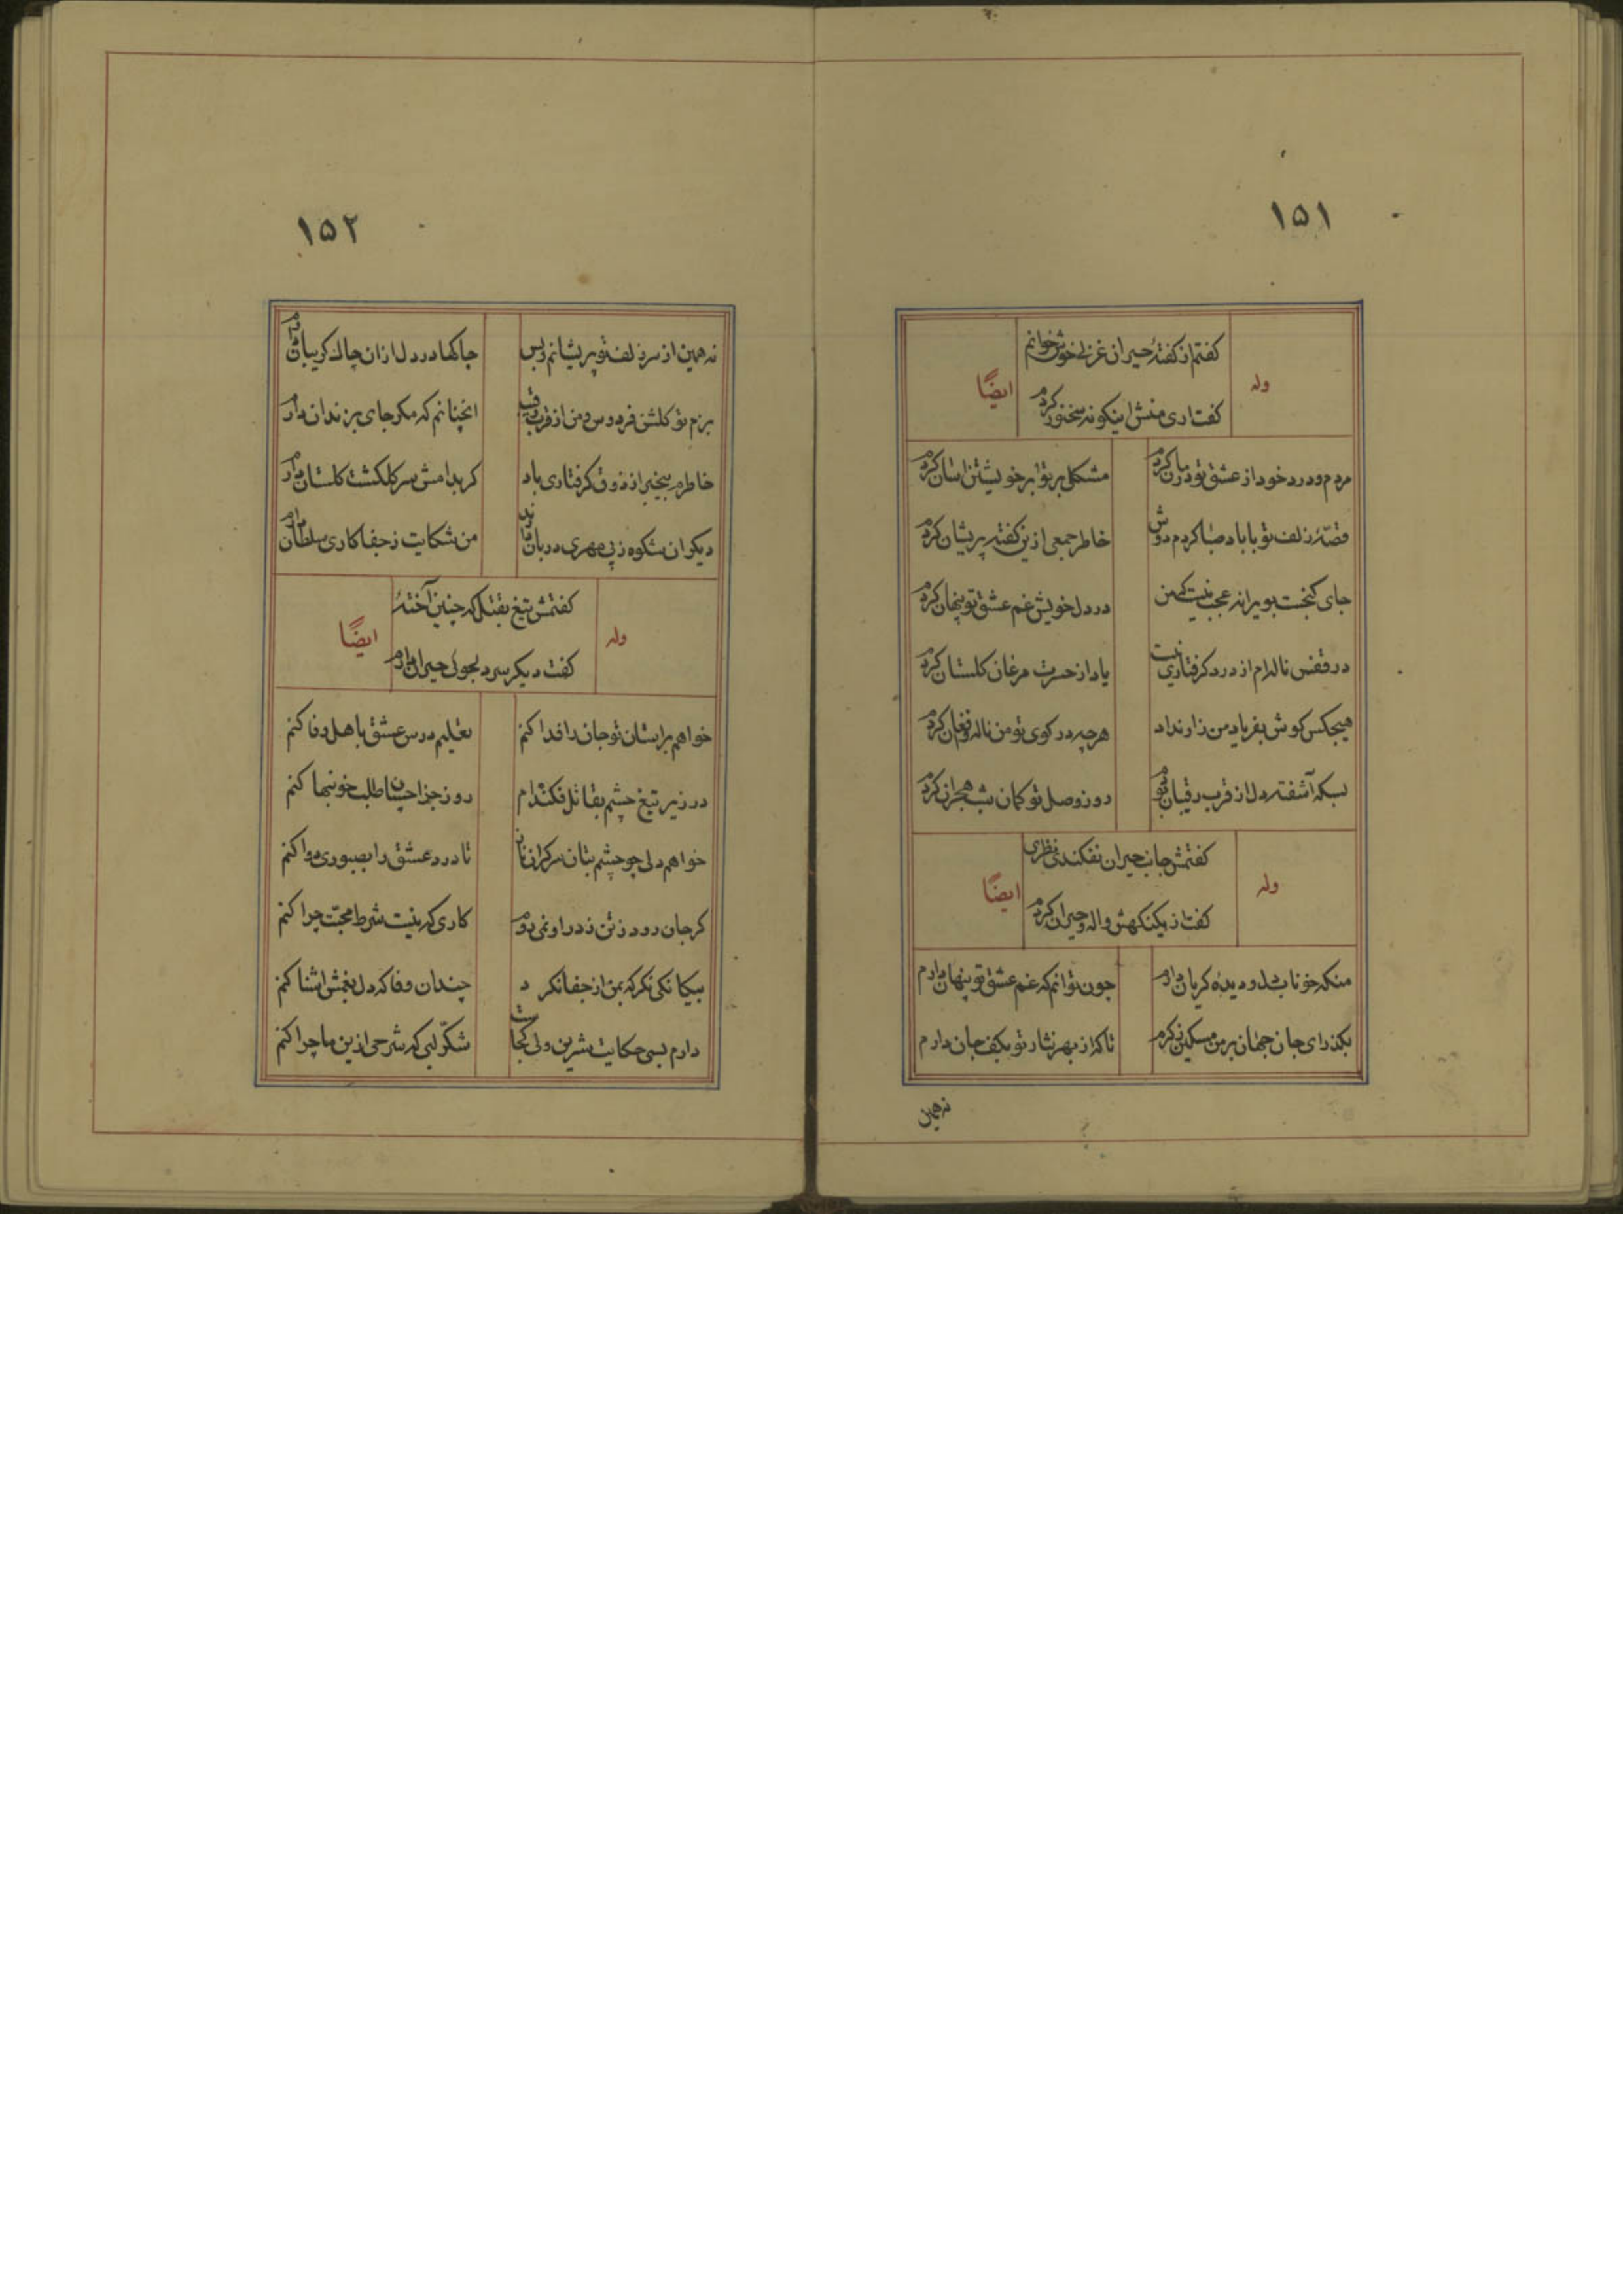 ۱۵۱
کفتم از کفتهٔ حیران غزلی خوش خوانم
وله
ایضًا
کفت اری منش اینکونه سخنور کردم
مردم و درد خود از عشق تو درمان کردم
مشکلی بر تو بر خویشتن اسان کردم
قصّهٔ زلف تو با باد صبا کردم دوش
خاطر جمعی ازین کفته پریشان کردم
جای کنجست بویرانه عجب نیست که من
در دل خویش غم عشق تو پنهان کردم
در قفس ناله‌ام از درد کرفتاری نیست
یاد از حسرت مرغان کلستان کردم
هیچکس کوش بفریاد من زار نداد
هرچه در کوی تو من ناله و افغان کردم
بسکه آشفته دل از قرب رقیبان تو‌ام
روز وصل تو کمان شب هجران کردم
کفتمش جانب حیران نفکندی نظری
وله
ایضًا
کفت از یکنکهش واله و حیران کردم
منکه خوناب دل و دیدهٔ کریان دارم
چون توانم که غم عشق تو پنهان دارم
بکذر ای جان جهان بر من مسکین ز کرم
تا که از بهر نثار تو بکف جان دارم
نه همین
۱۵۲
نه همین از سر زلف تو پریشانم و بس
چاکها در دل ازان چاک کریبان دارم
بزم تو کلشن فردوس و من از قرب رقیب
انچنانم که مکر جای بزندان دارم
خاطرم بیخبر از ذوق کرفتاری باد
کر بدامش سر کلکشت کلستان دارم
دیکران شکوه ز بی مهری دربان دارند
من شکایت ز جفا کاری سلطان دارم
کفتمش تیغ بقتل که چنین آختهٔ
وله
ایضًا
کفت دیکر سر دلجوئی حیران دارم
خواهم براستان تو جان را فدا کنم
تعلیم درس عشق باهل وفا کنم
در زیر تیغ چشم بقاتل فکنده‌ام
روز جزا چسان طلب خونبها کنم
خواهم دلی چو چشم بتان سرکران ناز
تا درد عشق را بصبوری دوا کنم
کر جان رود ز تن ز در او نمی روم
کاری که نیست شرط محبّت چرا کنم
بیکانکی نکر که بمن از جفا نکرد
چندان وفا که دل بغمش اشنا کنم
دارم بسی حکایت شیرین ولی کجاست
شکّر لبی که شرحی ازین ماجرا کنم